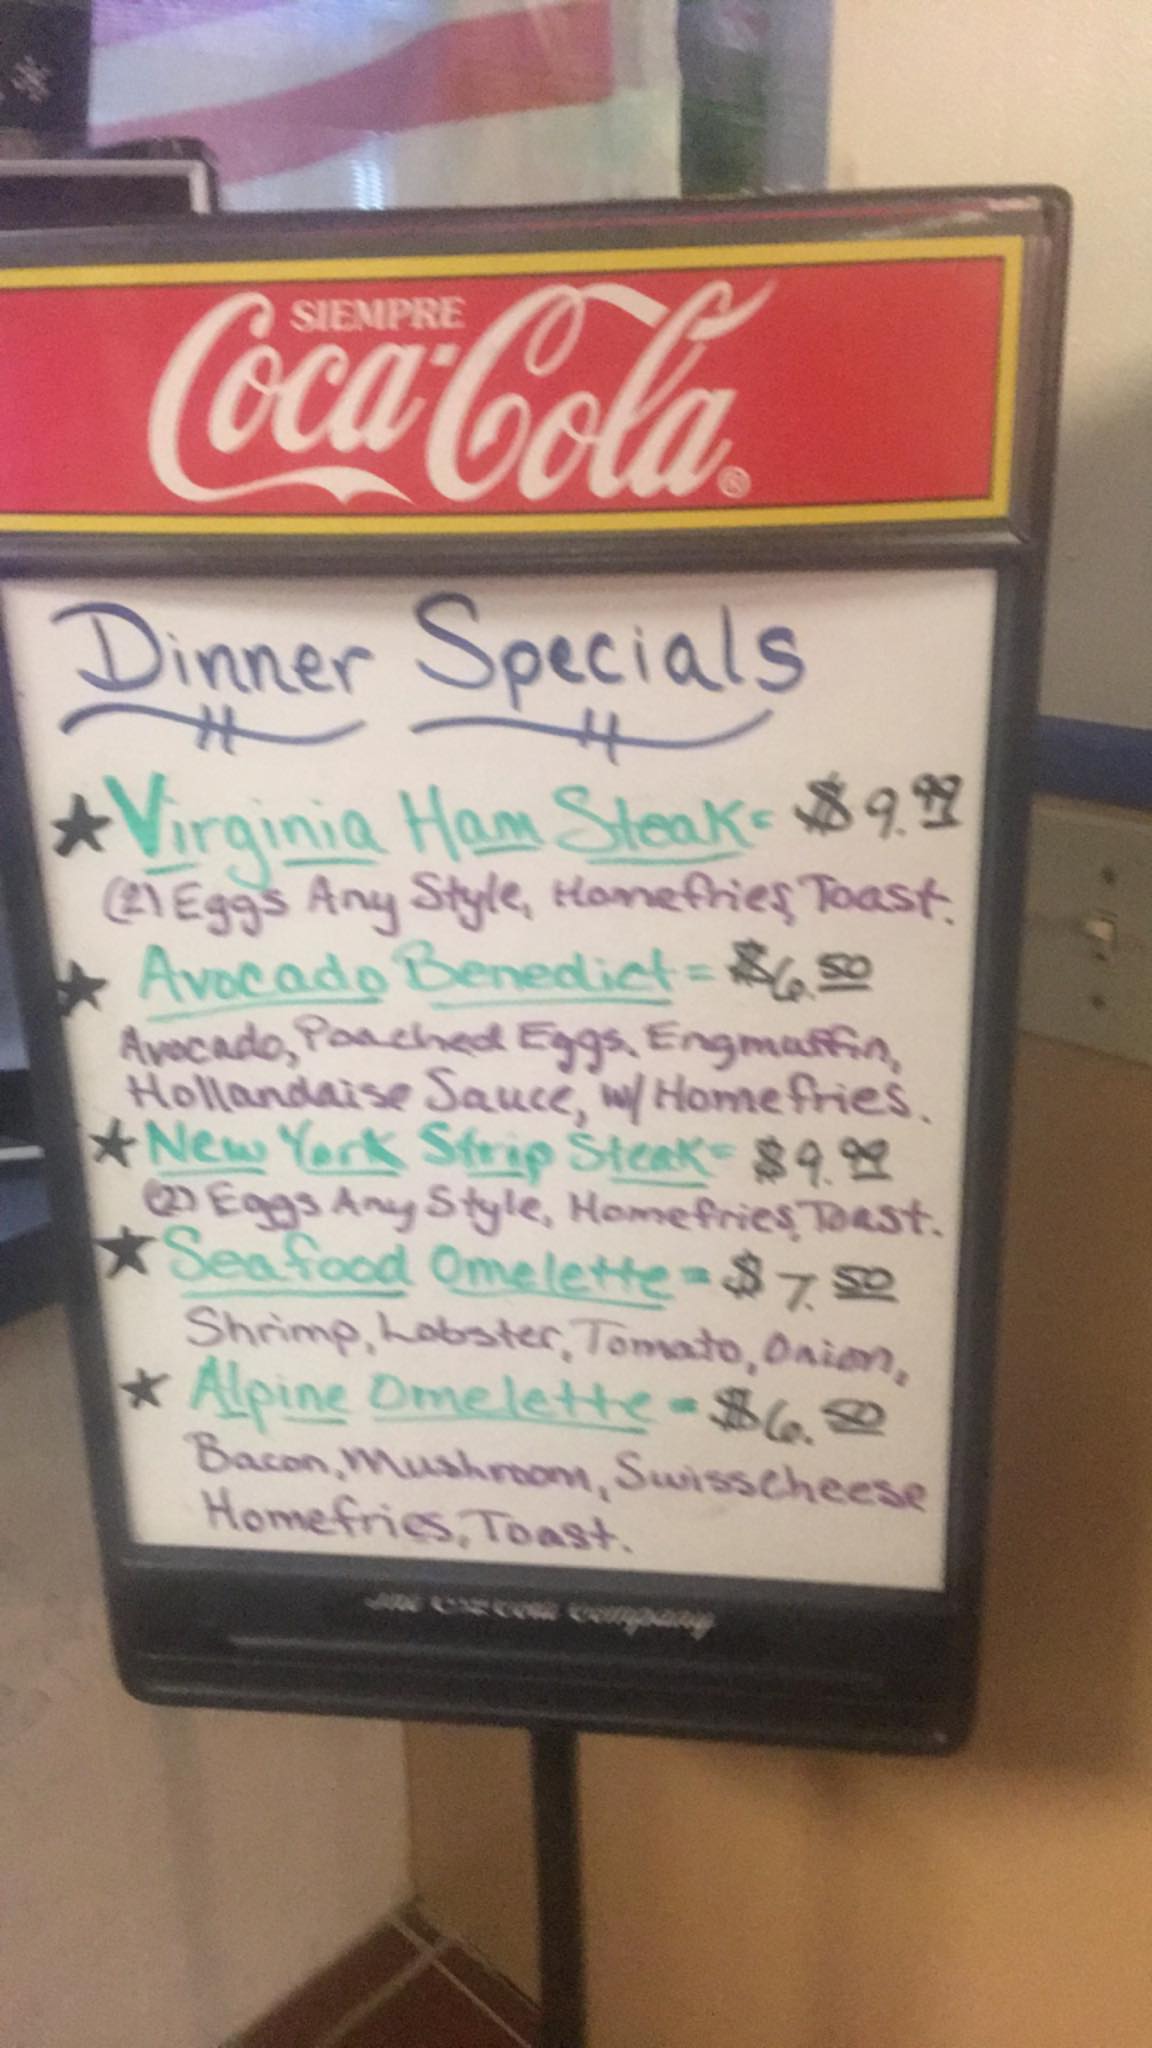 SIEMPRE
Coca-Cola®
Dinner Specials
★ Virginia Ham Steak = $9.99
(2) Eggs Any Style, Homefries, Toast.
★ Avocado Benedict = $6.50
Avocado, Poached Eggs, Engmuffin,
Hollandaise Sauce, w/ Homefries.
★ New York Strip Steak = $9.99
(2) Eggs Any Style, Homefries, Toast.
★ Seafood Omelette = $7.50
Shrimp, Lobster, Tomato, Onion,
★ Alpine Omelette = $6.50
Bacon, Mushroom, Swisscheese
Homefries, Toast.
The Coca-Cola Company